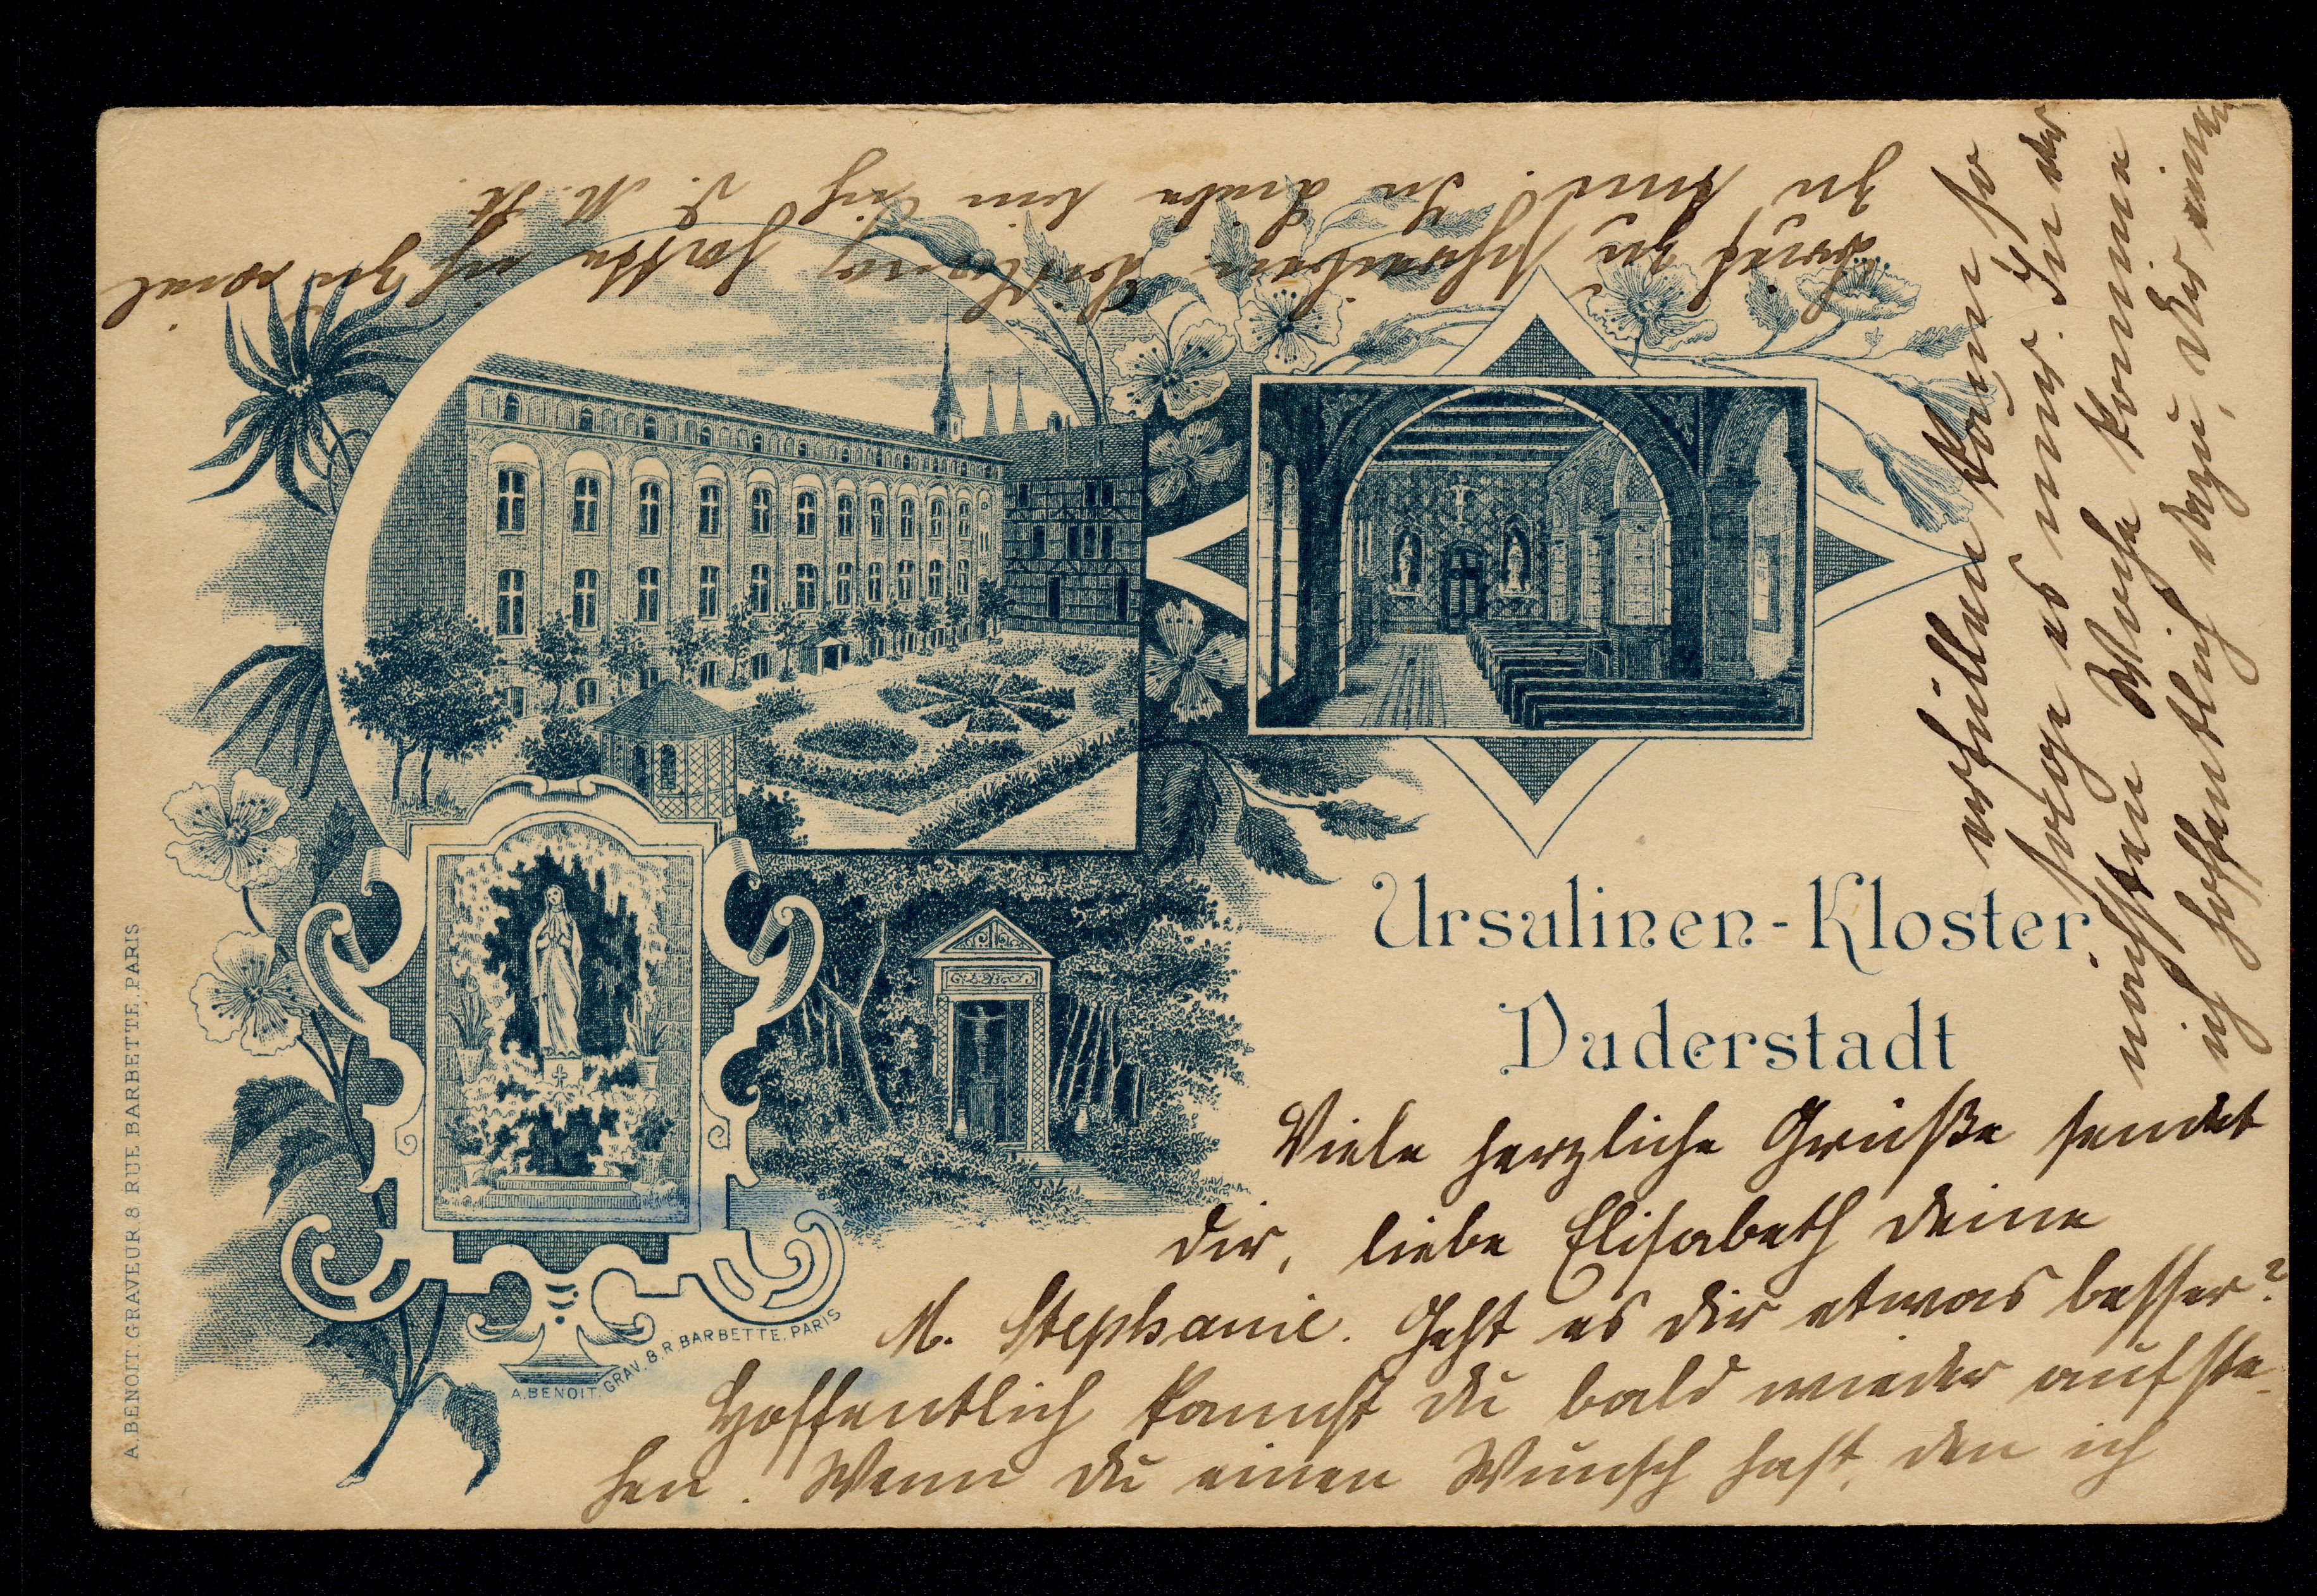 Ursulinen-Kloster
Duderstadt
Viele herzliche Grüße sendet
dir, liebe Elisabeth deine
M. Stephanie. Geht es dir etwas besser?
Hoffentlich kannst du bald wieder aufste-
hen. Wenn du einen Wunsch hast, den ich
erfüllen kann so
sage es mir. In der
nächsten Woche komme
ich hoffentlich dazu, dir einen
Brief zu schreiben. hatte ich zu viel
zu tun. In Liebe D. M. St.
A. BENOIT. GRAV. 8. R. BARBETTE. PARIS
A. BENOIT. GRAVEUR 8 RUE BARBETTE, PARIS